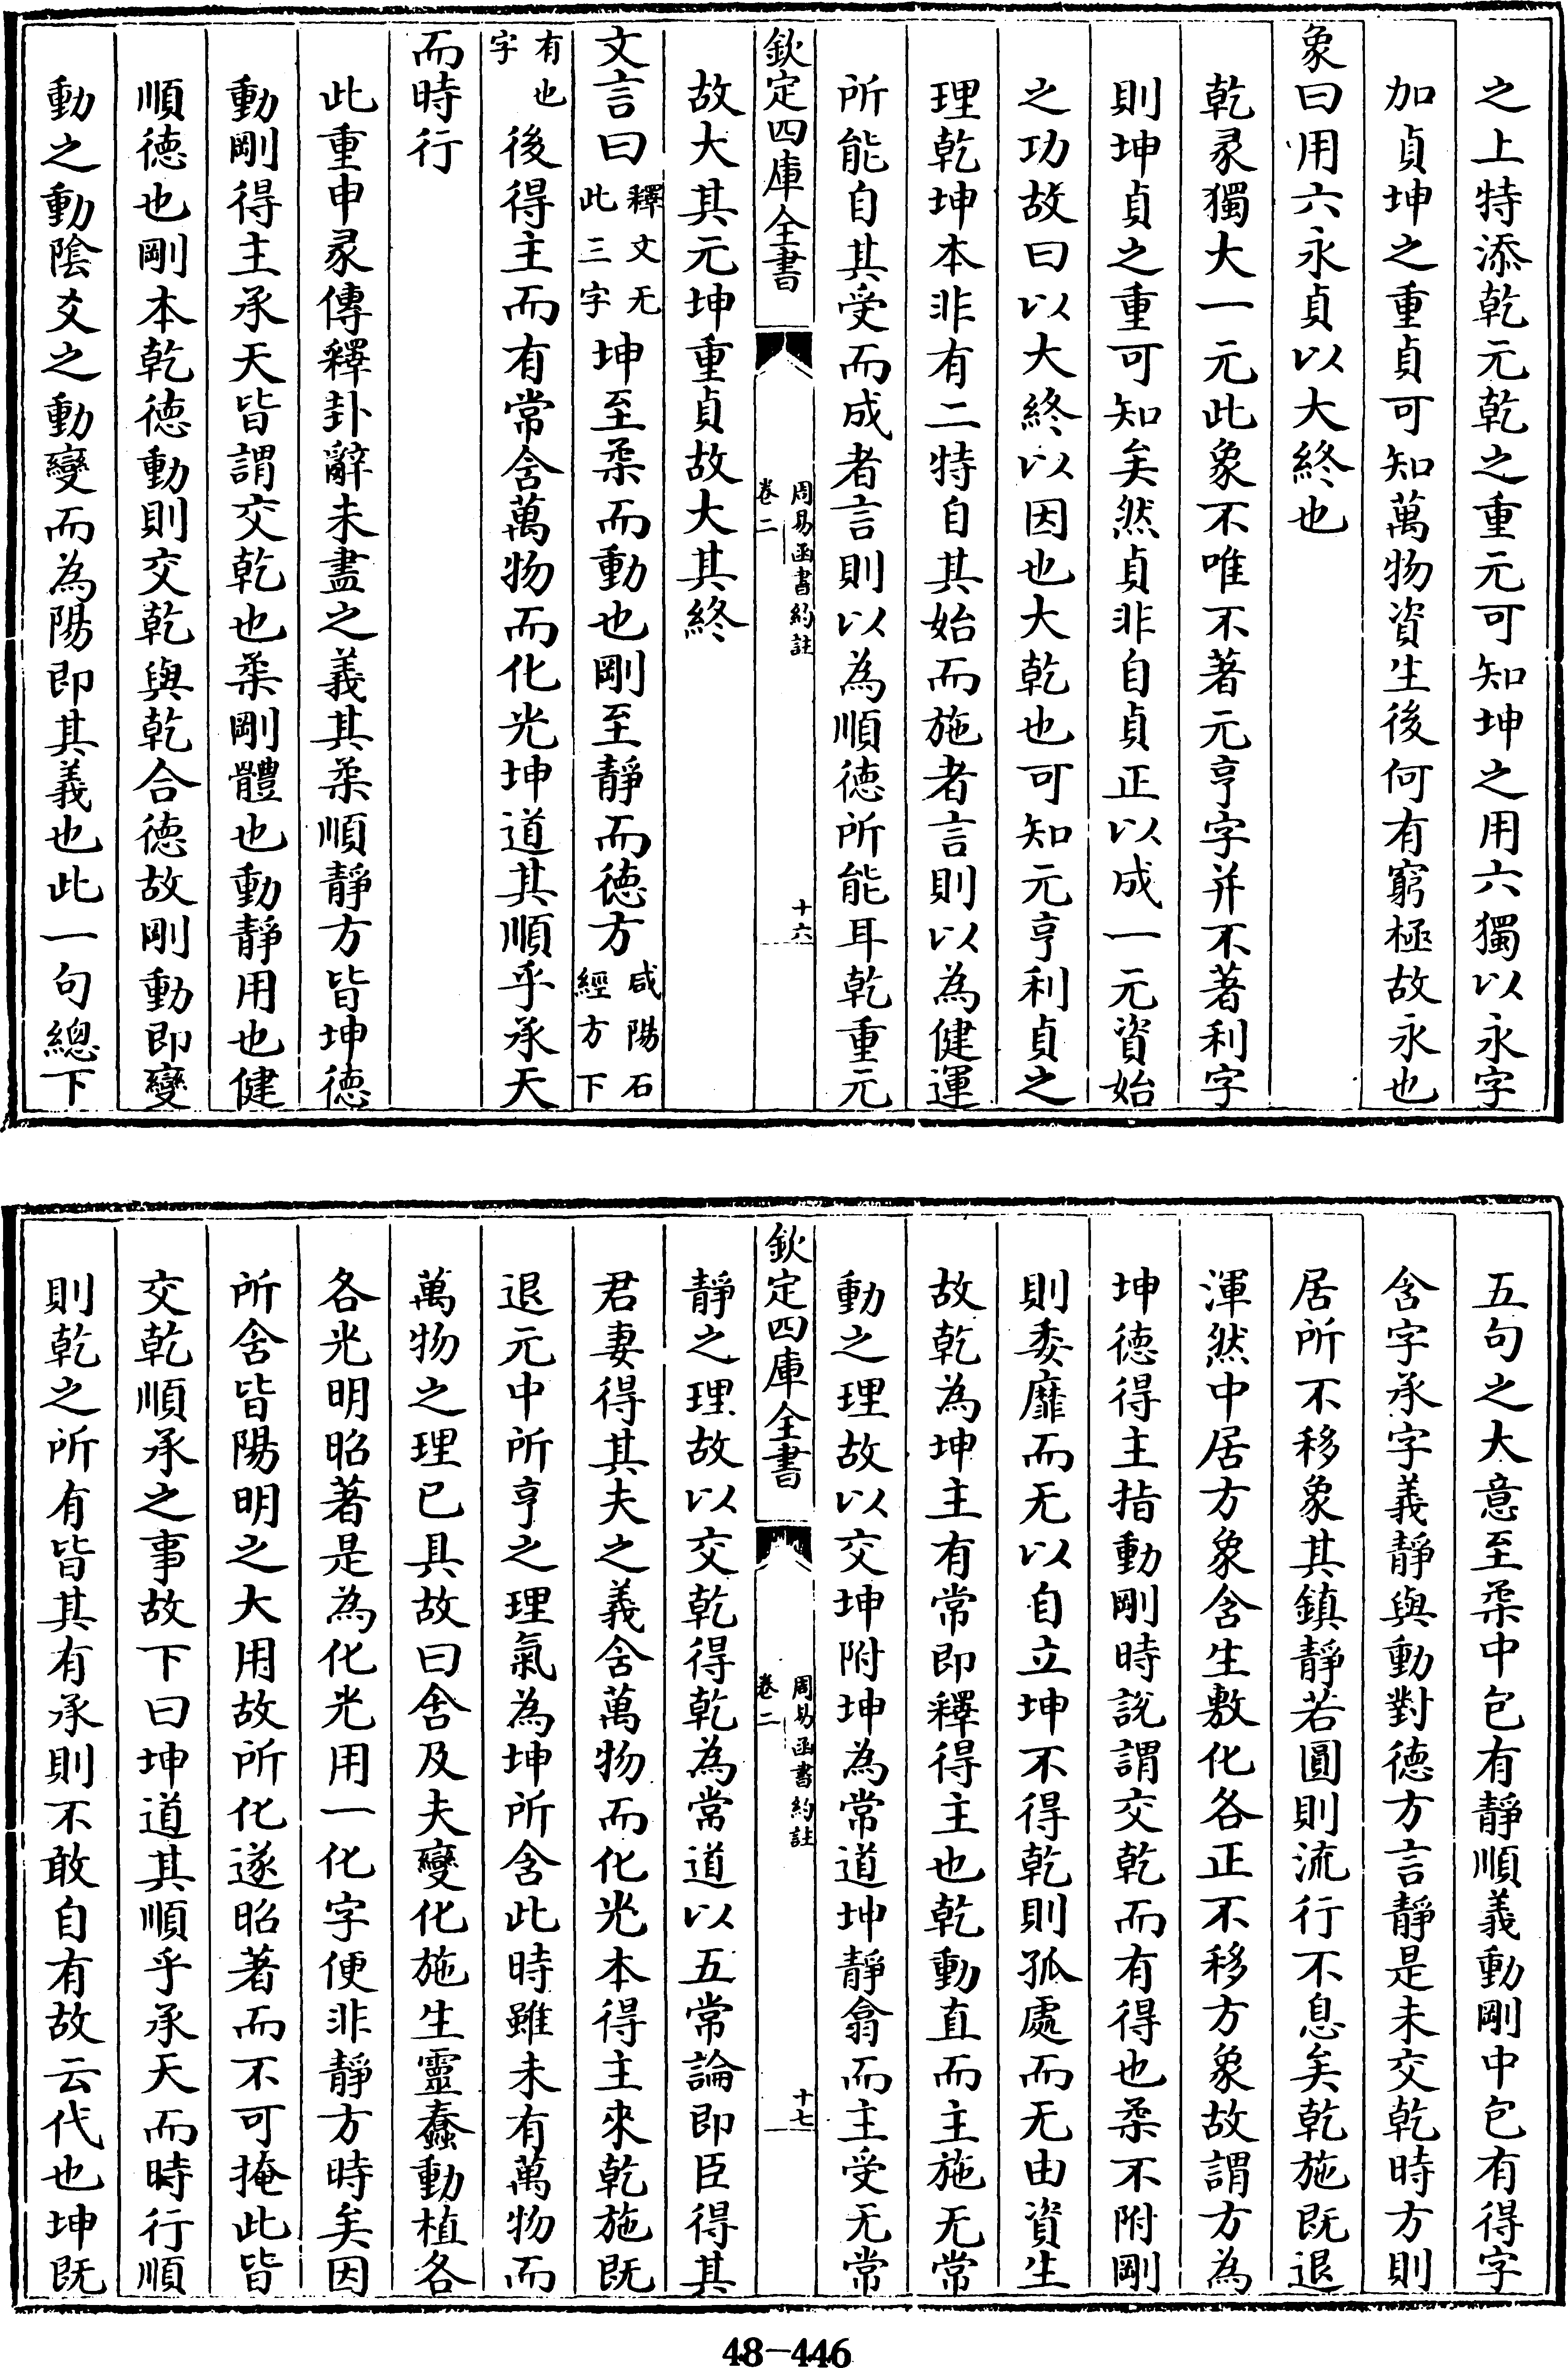 之上特添乾元乾之重元可知坤之用六獨以永字
加貞坤之重貞可知萬物資生後何有窮極故永也
象曰用六永貞以大終也
乾彖獨大一元此象不唯不著元亨字并不著利字
則坤貞之重可知矣然貞非自貞正以成一元資始
之功故曰以大終以因也大乾也可知元亨利貞之
理乾坤本非有二特自其始而施者言則以為健運
所能自其受而成者言則以為順徳所能耳乾重元
欽定四庫全書
周易函書約註
卷二
十六
故大其元坤重貞故大其終
文言曰釋文无此三字坤至柔而動也剛至靜而徳方咸陽石經方下
有也字後得主而有常含萬物而化光坤道其順乎承天
而時行
此重申彖傳釋卦辭未盡之義其柔順靜方皆坤徳
動剛得主承天皆謂交乾也柔剛體也動靜用也健
順徳也剛本乾徳動則交乾與乾合徳故剛動即變
動之動陰爻之動變而為陽即其義也此一句總下
五句之大意至柔中包有靜順義動剛中包有得字
含字承字義靜與動對徳方言靜是未交乾時方則
居所不移象其鎮靜若圓則流行不息矣乾施既退
渾然中居方象含生敷化各正不移方象故謂方為
坤徳得主指動剛時說謂交乾而有得也柔不附剛
則委靡而无以自立坤不得乾則孤處而无由資生
故乾為坤主有常即釋得主也乾動直而主施无常
動之理故以交坤附坤為常道坤靜翕而主受无常
欽定四庫全書
周易函書約註
卷二
十七
靜之理故以交乾得乾為常道以五常論即臣得其
君妻得其夫之義含萬物而化光本得主來乾施既
退元中所亨之理氣為坤所含此時雖未有萬物而
萬物之理已具故曰含及夫變化施生靈蠢動植各
各光明昭著是為化光用一化字便非靜方時矣因
所含皆陽明之大用故所化遂昭著而不可掩此皆
交乾順承之事故下曰坤道其順乎承天而時行順
則乾之所有皆其有承則不敢自有故云代也坤既
48-446